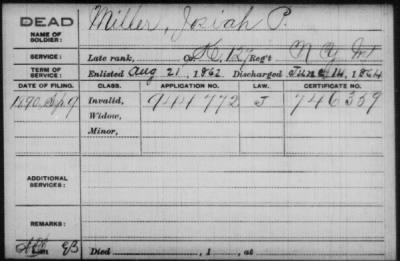 DEAD
NAME OF SOLDIER: Miller, Josiah P.
SERVICE: Late rank, Co. K, 127 Reg't N. Y. Inf.
TERM OF SERVICE: Enlisted Aug 21, 1862 Discharged June 14, 1864
DATE OF FILING. CLASS. APPLICATION NO. LAW. CERTIFICATE NO.
1890, Sep 9 Invalid, 944 772 J 746 359
Widow,
Minor,
ADDITIONAL SERVICES:
REMARKS:
Died , 1 , at